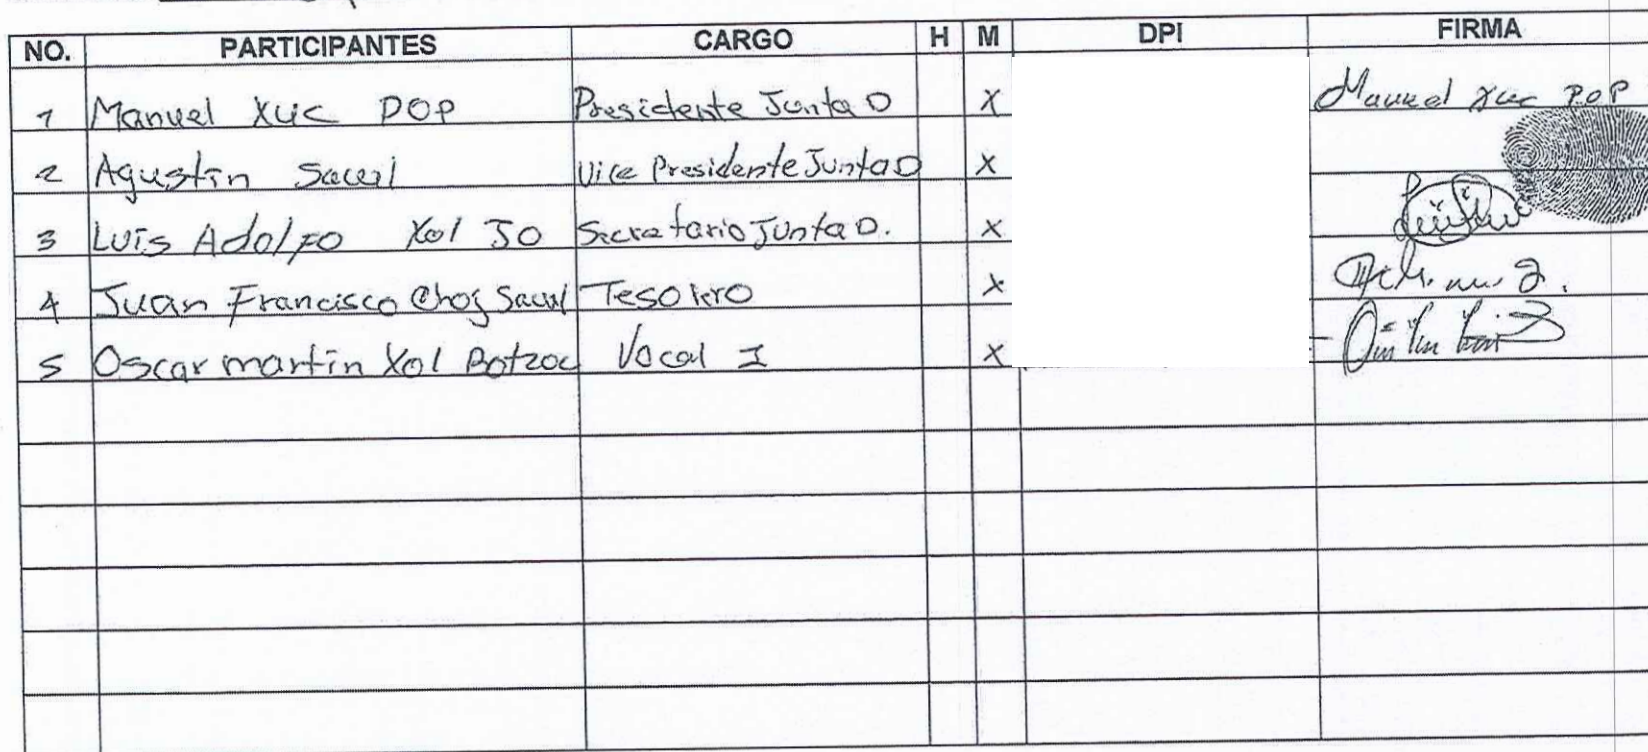 NO. PARTICIPANTES CARGO H M DPI FIRMA
1 Manuel Xuc Pop Presidente Junta D X Manuel Xuc Pop
2 Agustín Sacul Vice Presidente Junta D X
3 Luis Adolfo Xol Jo Secretario Junta D. X
4 Juan Francisco Choj Sacul Tesorero X
5 Oscar martín Xol Botzoc Vocal I X